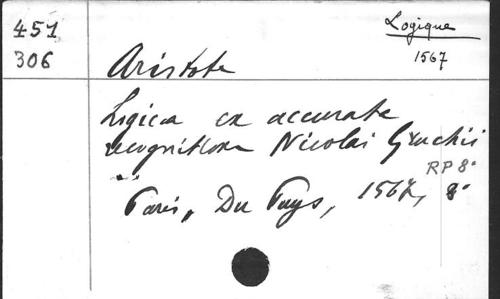 451
306
Logique
1567
Aristote
Logica ex accurata
recognitione Nicolai Gruchii
RP 8°
Paris, Du Puys, 1567, 8°